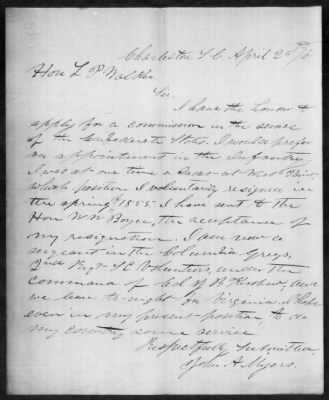 Charleston S C April 25th/61
Hon L P Walker
Sir.
I have the honor to
apply for a commission in the service
of the Confederate States. I would prefer
an appointment in the Infantry
I was at one time a at West Point,
which position I voluntarily resigned in
the spring 1855. I have sent to the
Hon W W Boyce, the acceptance of
my resignation. I am now a
sergeant in the Columbia Greys,
2nd Regt S C Volunteers, under the
command of Col J B Kershaw, and
we leave to-night for Virginia. I hope
even in my present position, to do
my country some service.
Respectfully Submitted,
John A Myers.